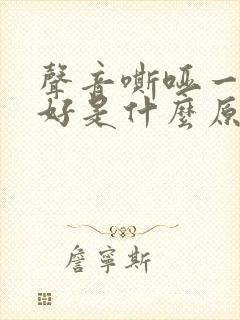 聲音嘶啞一
好是什麼原
詹寧斯